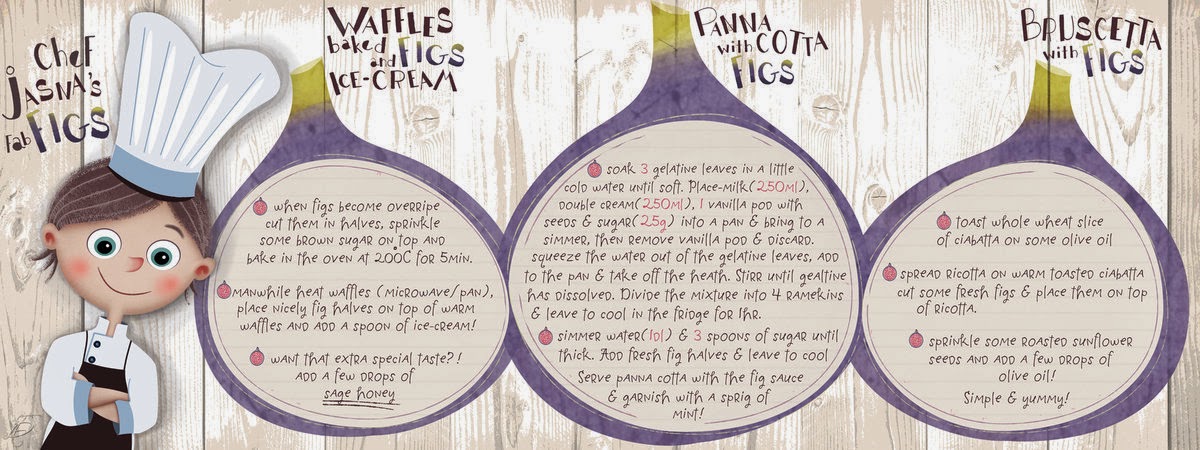 Chef
Jasna's
Fab FIGS
WAFFLES
baked FIGS
and
ICE-CREAM
when figs become overripe
cut them in halves, sprinkle
some brown sugar on top and
bake in the oven at 200°C for 5min.
Manwhile heat waffles (microwave/pan),
place nicely fig halves on top of warm
waffles and add a spoon of ice-cream!
want that extra special taste?!
Add a few drops of
sage honey
PANNA
with COTTA
FIGS
soak 3 gelatine leaves in a little
cold water until soft. Place-milk(250ml),
double cream(250ml), 1 vanilla pod with
seeds & sugar(25g) into a pan & bring to a
simmer, then remove vanilla pod & discard.
squeeze the water out of the gelatine leaves, add
to the pan & take off the heath. Stirr until gealtine
has dissolved. Divide the mixture into 4 ramekins
& leave to cool in the fridge for 1hr.
simmer water(1dl) & 3 spoons of sugar until
thick. Add fresh fig halves & leave to cool
Serve panna cotta with the fig sauce
& garnish with a sprig of
mint!
BRUSCETTA
with FIGS
toast whole wheat slice
of ciabatta on some olive oil
spread ricotta on warm toasted ciabatta
cut some fresh figs & place them on top
of ricotta.
sprinkle some roasted sunflower
seeds and add a few drops of
olive oil!
Simple & yummy!